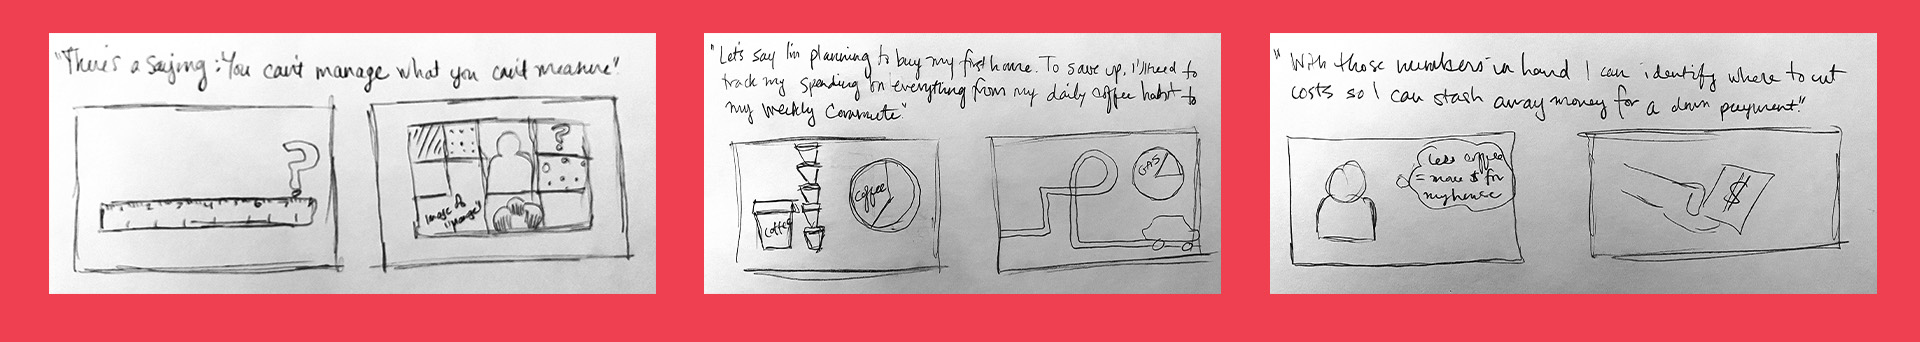 "There's a saying: You can't manage what you can't measure".
?
?
Image of
"manager"
"Let's say I'm planning to buy my first home. To save up, I'll need to
track my spending on everything from my daily coffee habit to
my weekly commute."
Coffee
Coffee
GAS
"With those numbers in hand I can identify where to cut
costs so I can stash away money for a down payment."
Less coffee
= more $ for
my house
$